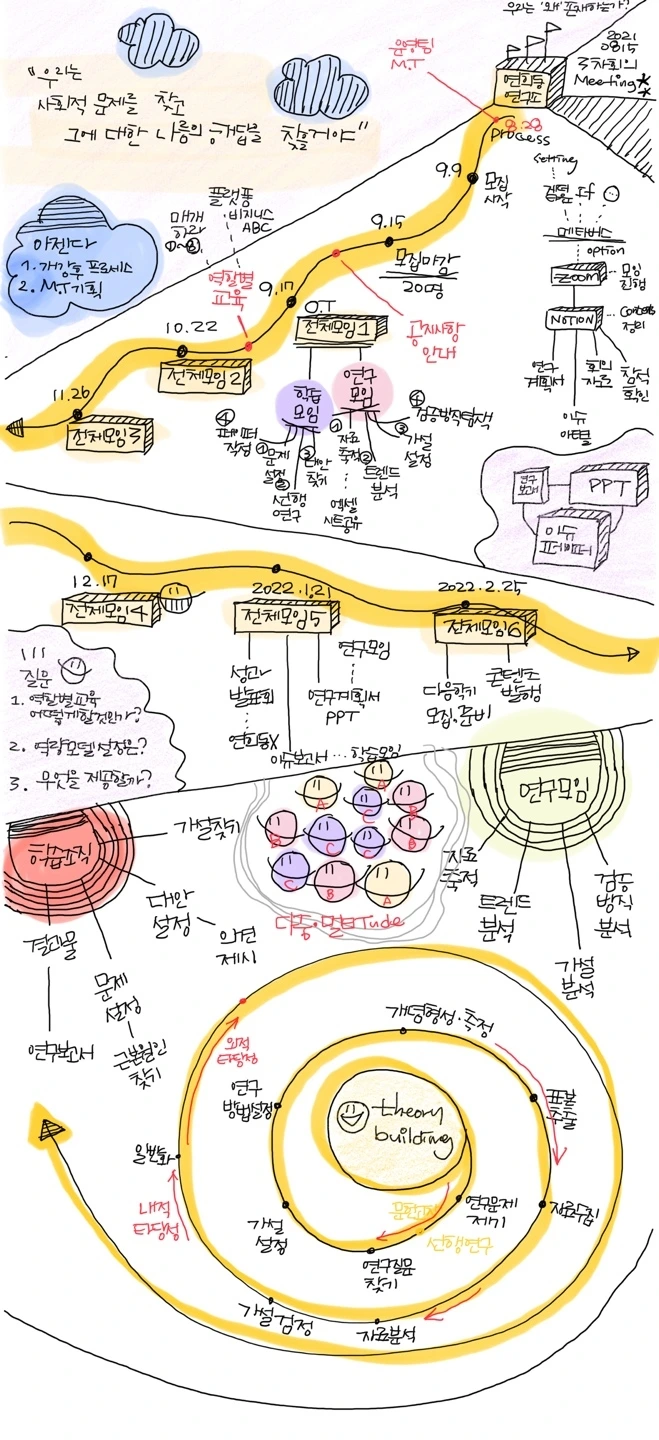 우리는 '왜' 존재하는가?
2021
0815
3차회의
Meeting
연희동
연구소
운영팀
M.T
"우리는
사회적 문제를 찾고
그에 대한 나름의 해답을 찾을거야"
8.28
process
9.9
모집
시작
9.15
모집마감
20명
공지사항
안내
9.17
O.T
전체모임1
플랫폼
비지니스
ABC
매개
하라
역할별
교육
아젠다
1. 개강후 프로세스
2. M.T기획
10.22
전체모임2
11.26
전체모임3
학습
모임
④ 페이퍼
작성
① 문제
설정
② 선행
연구
③ 대안
찾기
연구
모임
① 자료
축적
엑셀
시트공유
② 트렌드
분석
③ 가설
설정
④ 검증방식탐색
setting
if
메타버스
option
ZOOM
모임
진행
NOTION
정리
연구
계획서
회의
자료
참석
확인
이슈
연구
보고서
PPT
이슈
페이퍼
12.17
전체모임4
2022.1.21
전체모임5
2022.2.25
전체모임6
성과
발표회
연희동X
이슈보고서 … 학습모임
연구모임
연구계획서
PPT
다음학기
모집.준비
콘텐츠
발행
질문
1. 역할별교육
어떻게할것인가?
2. 역량모델 설정은?
3. 무엇을 제공할까?
학습조직
가설찾기
대안
설정
의견
제시
문제
설정
근본원인
찾기
결과물
연구보고서
A
A
C
B
B
C
C
B
C
B
A
연구모임
자료
축적
트렌드
분석
가설
분석
검증
방식
분석
theory
building
문헌고찰
선행연구
연구문제
제기
연구질문
찾기
가설
설정
연구
방법설정
개념형성·측정
표본
추출
자료수집
자료분석
가설검정
내적
타당성
일반화
외적
타당성